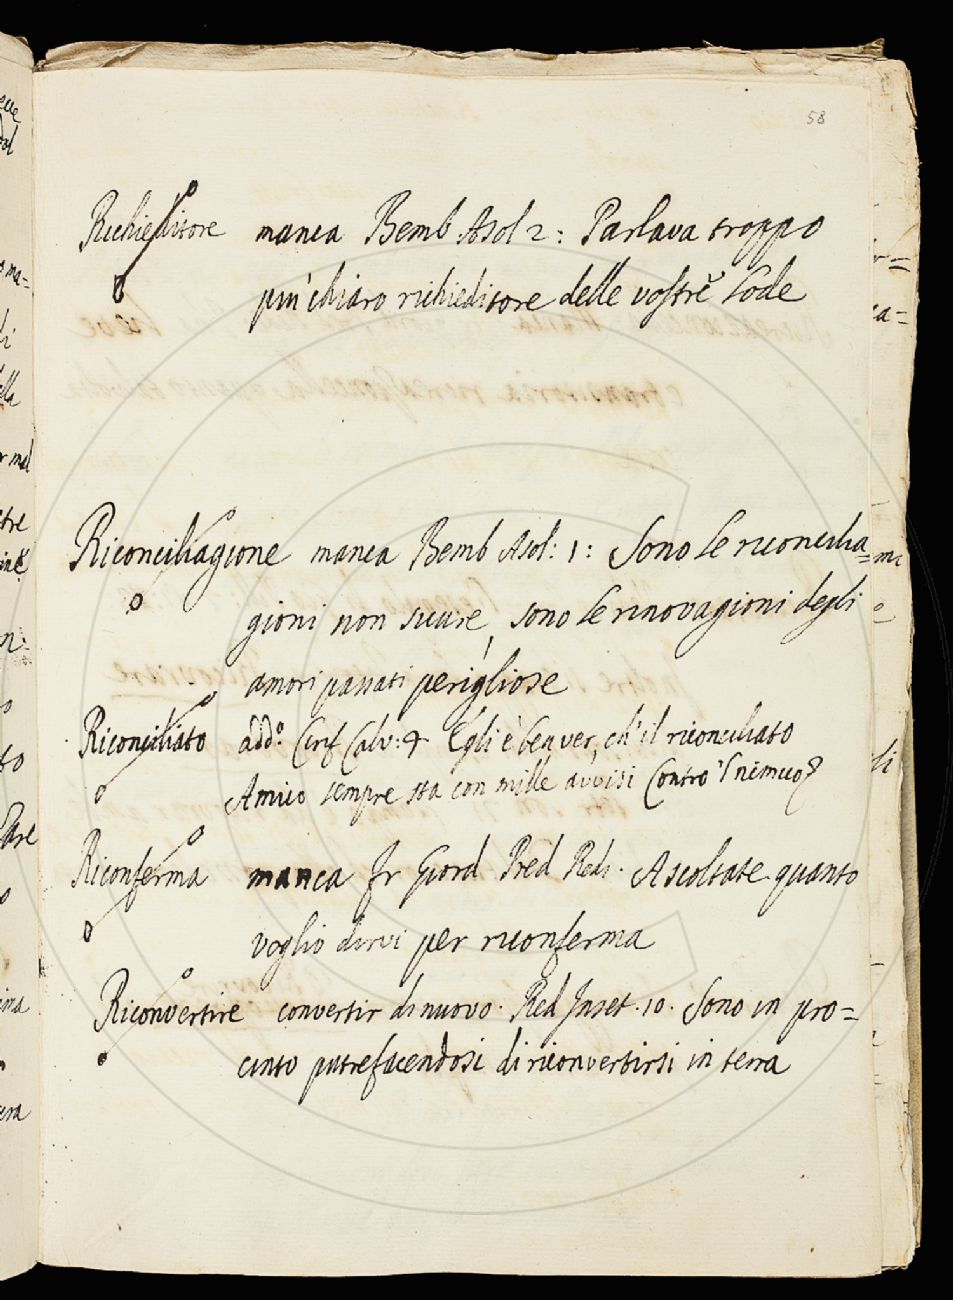 58
Richieditore manca Bemb Asol 2: Parlava troppo
più chiaro richieditore delle vostre lode
Riconciliagione manca Bemb Asol: 1: Sono le riconcilia=
gioni non sicure, sono le rinovagioni degli
amori passati perigliose
Riconciliato add.º Cirif Calv: 4 Egli è ben ver, ch' il riconciliato
Amico sempre sta con mille avvisi Contro 'l nimico
Riconferma manca Fr Giord Pred Red. Ascoltate quanto
voglio dirvi per riconferma
Riconvertire convertir di nuovo. Red Inset. 10. Sono in pro=
cinto putrefacendosi di riconvertirsi in terra